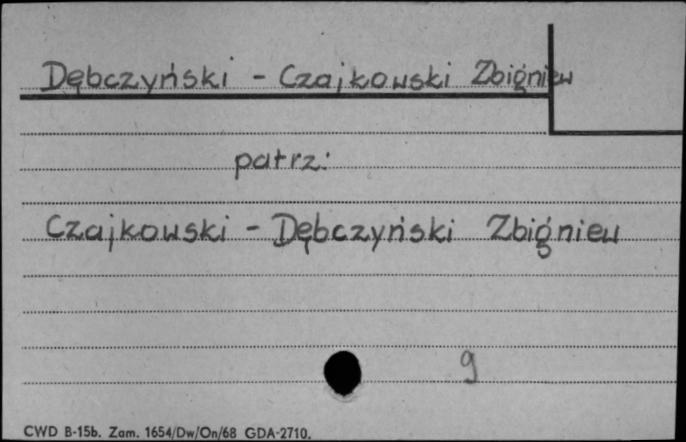 Dębczyński - Czajkowski Zbigniew
patrz:
Czajkowski - Dębczyński Zbigniew
9
CWD B-15b. Zam. 1654/Dw/On/68 GDA-2710.